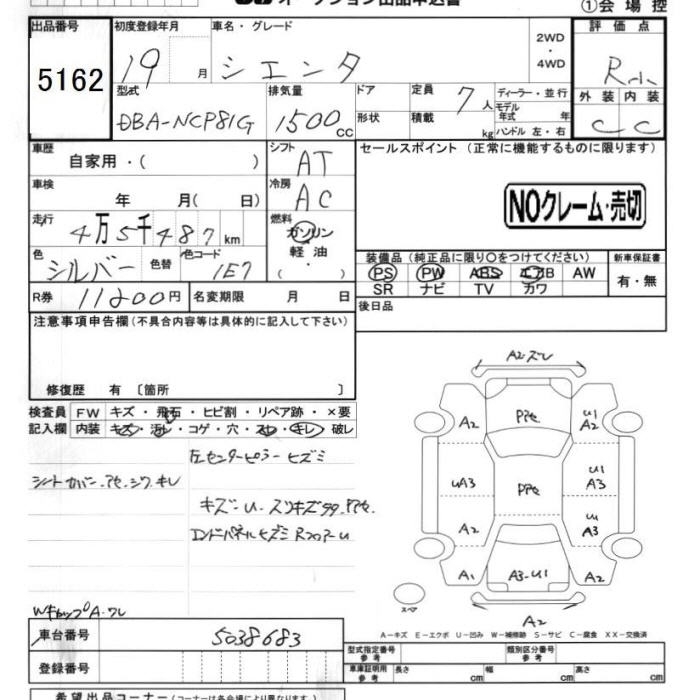 オークション出品申込書
①会場控
出品番号
5162
初度登録年月
19 月
車名・グレード
シエンタ
2WD
・
4WD
評価点
外装 内装
C C
型式
DBA-NCP81G
排気量
1500 CC
ドア
形状
定員
7人
積載
kg
ディーラー・並行
モデル
年式 年
ハンドル 左・右
車歴
自家用・( )
シフト
AT
セールスポイント (正常に機能するものに限ります)
車検
年 月( 日)
冷房
AC
NOクレーム・売切
走行
4万5千487km
燃料
ガソリン
軽油
・
色
シルバー
色替
色コード
1E7
装備品 (純正品に限り○をつけてください)
PS PW ABS エアB AW
SR ナビ TV カワ
新車保証書
有・無
R券
11200円
名変期限 月 日
後日品
注意事項申告欄 (不具合内容等は具体的に記入して下さい)
修復歴 有 〔箇所 〕
検査員
記入欄
FW キズ・飛石・ヒビ割・リペア跡・×要
内装 キズ・汚レ・コゲ・穴・スレ・キレ・破レ
左センターピラーヒズミ
エンドパネルヒズミ Rフロアーu
A2ズレ
A2
u1
A2
uA3
u1
A3
A2
u
A3
A1
A3-u1
A2
スペア
A2
A-キズ E-エクボ U-凹み W-補修跡 S-サビ C-腐食 XX-交換済
車台番号
5038683
登録番号
型式指定番号
参考
類別区分番号
参考
車庫証明用
参考
長さ cm
幅 cm
高さ cm
希望出品コーナー (コーナーは各会場により異なります。)